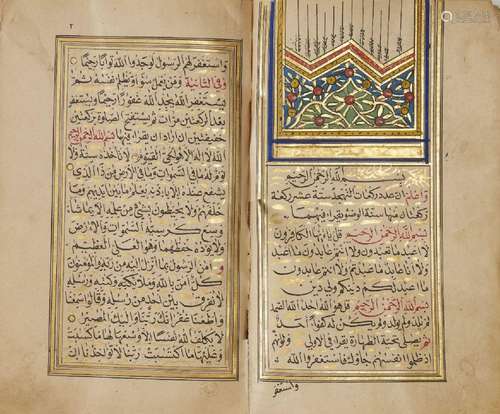 بسم الله الرحمن الرحيم
واعلم ان عدد ركعات التهجد ستة عشر ركعة
ركعتان منها سنة الوضوء يقرا فيهما
بسم الله الرحمن الرحيم قل يا ايها الكافرون
لا اعبد ما تعبدون ولا انتم عابدون ما اعبد
ولا انا عابد ما عبدتم ولا انتم عابدون
ما اعبد لكم دينكم ولي دين
بسم الله الرحمن الرحيم قل هو الله احد الله الصمد
لم يلد ولم يولد ولم يكن له كفوا احد
ثم يصلي تحية الطهارة يقرا في الاولى ولو انهم
اذ ظلموا انفسهم جاؤك فاستغفروا الله
واستغفر
٢
واستغفر لهم الرسول لوجدوا الله توابا رحيما
وفي الثانية ومن يعمل سوءا او يظلم نفسه ثم
يستغفر الله يجد الله غفورا رحيما ويستغفر
بعد ركعتين مرات ثم يستفتح الصلوة بركعتين
خفيفتين ان اراد ان يقرا فيها بسم الله الرحمن الرحيم
الله لا اله الا هو الحي القيوم لا تاخذه سنة ولا
نوم له ما في السموات وما في الارض من ذا الذي
يشفع عنده الا باذنه يعلم ما بين ايديهم وما
خلفهم ولا يحيطون بشيء من علمه الا بما شاء
وسع كرسيه السموات والارض
ولا يؤده حفظهما وهو العلي العظيم
امن الرسول بما انزل اليه من ربه والمؤمنون
كل امن بالله وملئكته وكتبه ورسله
لا نفرق بين احد من رسله وقالوا سمعنا
واطعنا غفرانك ربنا واليك المصير
لا يكلف الله نفسا الا وسعها لها ما كسبت
وعليها ما اكتسبت ربنا لا تؤاخذنا ان